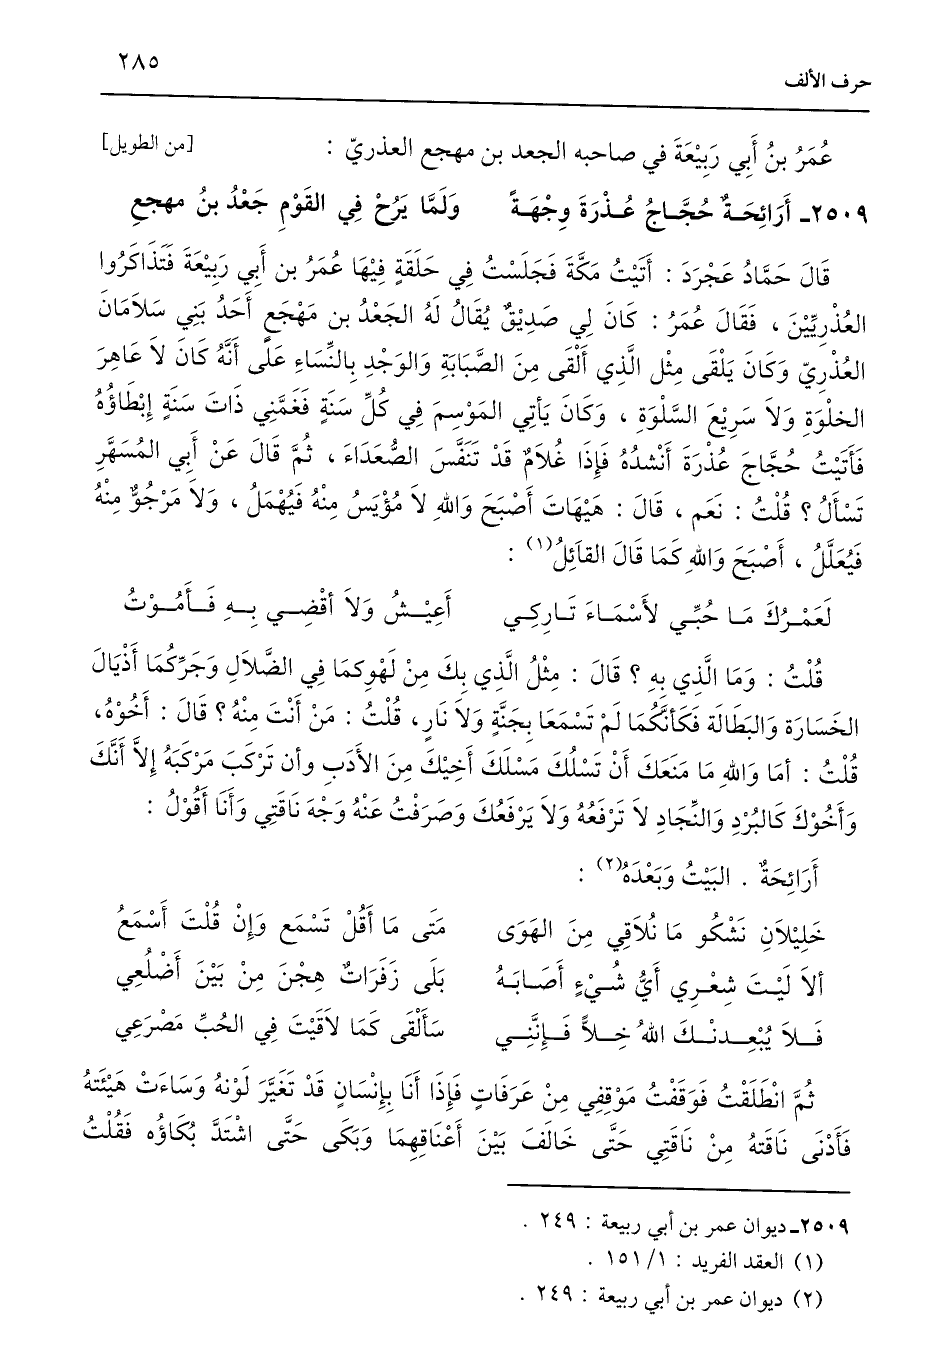 ٢٨٥
حرف الألف
عُمَرُ بنُ أَبِي رَبِيْعَةَ في صاحبه الجعد بن مهجع العذريّ : [من الطويل]
٢٥٠٩ـ أَرَائِحَـةٌ حُجَّـاجُ عُـذْرَةَ وِجْهَـةً وَلَمَّا يَرُحْ فِي القَوْمِ جَعْدُ بنُ مهجعِ
قَالَ حَمَّادُ عَجْرَدَ : أَتَيْتُ مَكَّةَ فَجَلَسْتُ فِي حَلقَةٍ فِيْهَا عُمَرُ بن أَبِي رَبِيْعَةَ فَتَذَاكَرُوا
العُذْرِيِّيْنَ ، فَقَالَ عُمَرُ : كَانَ لِي صَدِيْقٌ يُقَالُ لَهُ الجَعْدُ بن مَهْجَعٍ أَحَدُ بَنِي سَلاَمَانَ
العُذْرِيّ وَكَانَ يَلْقَى مِثْل الَّذِي أَلْقَى مِنَ الصَّبَابَةِ وَالوَجْدِ بِالنِّسَاءِ عَلَى أَنَّهُ كَانَ لاَ عَاهِرَ
الخلْوَةِ وَلاَ سَرِيْعَ السَّلْوَةِ ، وَكَانَ يَأتِي المَوْسِمَ فِي كُلِّ سَنَةٍ فَغَمَّنِي ذَاتَ سَنَةٍ إِبْطَاؤُهُ
فَأَتَيْتُ حُجَّاجَ عُذْرَةَ أَنْشدُهُ فَإِذَا غُلاَمٌ قَدْ تَنَفَّسَ الصُّعَدَاءَ ، ثُمَّ قَالَ عَنْ أَبِي المُسَهَّرِ
تَسْأَلُ ؟ قُلْتُ : نَعَم ، قَالَ : هَيْهَاتَ أَصْبَحَ وَاللهِ لاَ مُؤْيِسٌ مِنْهُ فَيُهْمَلُ ، وَلاَ مَرْجُوٌّ مِنْهُ
فَيُعَلَّلُ ، أَصْبَحَ وَاللهِ كَمَا قَالَ القَائِلُ(١) :
لَعَمْرُكَ مَـا حُبِّـي لأَسْمَـاءَ تَـارِكِـي أَعِيْـشُ وَلاَ أَقْضِـي بِـهِ فَـأَمُـوْتُ
قُلْتُ : وَمَا الَّذِي بِهِ ؟ قَالَ : مِثْلُ الَّذِي بِكَ مِنْ لَهْوِكمَا فِي الضَّلاَلِ وَجَرِّكمَا أَذْيَالَ
الخَسَارَة وَالبَطَالَة فَكَأنَّكُمَا لَمْ تَسْمَعَا بِجَنَّةٍ وَلاَ نَارٍ، قُلْتُ : مَنْ أَنْتَ مِنْهُ ؟ قَالَ : أَخُوْهُ،
قُلْتُ : أمَا وَاللهِ مَا مَنَعَكَ أَنْ تَسْلُكَ مَسْلَكَ أَخِيْكَ مِنَ الأَدَبِ وأن تَرْكَبَ مَرْكَبَهُ إِلاَّ أَنَّكَ
وَأَخُوْكَ كَالبُرْدِ وَالنِّجَادِ لاَ تَرْفَعُهُ وَلاَ يَرْفَعُكَ وَصَرَفْتُ عَنْهُ وَجْهَ نَاقَتِي وَأَنَا أَقُوْلُ :
أَرَائِحَةٌ . البَيْتُ وَبَعْدَهُ(٢) :
خَلِيْلاَنِ نَشْكُو مَا نُلاَقِي مِنَ الهَوَى مَتَى مَا أَقُلْ تَسْمَع وَإِنْ قُلْتَ أَسْمَعُ
ألاَ لَيْـتَ شِعْـرِي أَيُّ شَـيْءٍ أَصَـابَـهُ بَلَى زَفَرَاتٌ هِجْنَ مِنْ بَيْنَ أَضْلُعِي
فَـلاَ يُبْعِـدنْـكَ اللهُ خِـلاًّ فَـإِنَّنِـي سَأَلْقَى كَمَا لاَقَيْتَ فِي الحُبِّ مَصْرَعِي
ثُمَّ انْطَلَقْتُ فَوَقَفْتُ مَوْقِفِي مِنْ عَرَفَاتٍ فَإِذَا أَنَا بِإِنْسَانٍ قَدْ تَغَيَّرَ لَوْنهُ وَسَاءَتْ هَيْئَتهُ
فَأَدْنَى نَاقَتهُ مِنْ نَاقَتِي حَتَّى خَالَفَ بَيْنَ أَعْنَاقِهِمَا وَبَكَى حَتَّى اشْتَدَّ بُكَاؤُه فَقُلْتُ
٢٥٠٩ـ ديوان عمر بن أبي ربيعة : ٢٤٩ .
(١) العقد الفريد : ١/ ١٥١ .
(٢) ديوان عمر بن أبي ربيعة : ٢٤٩ .